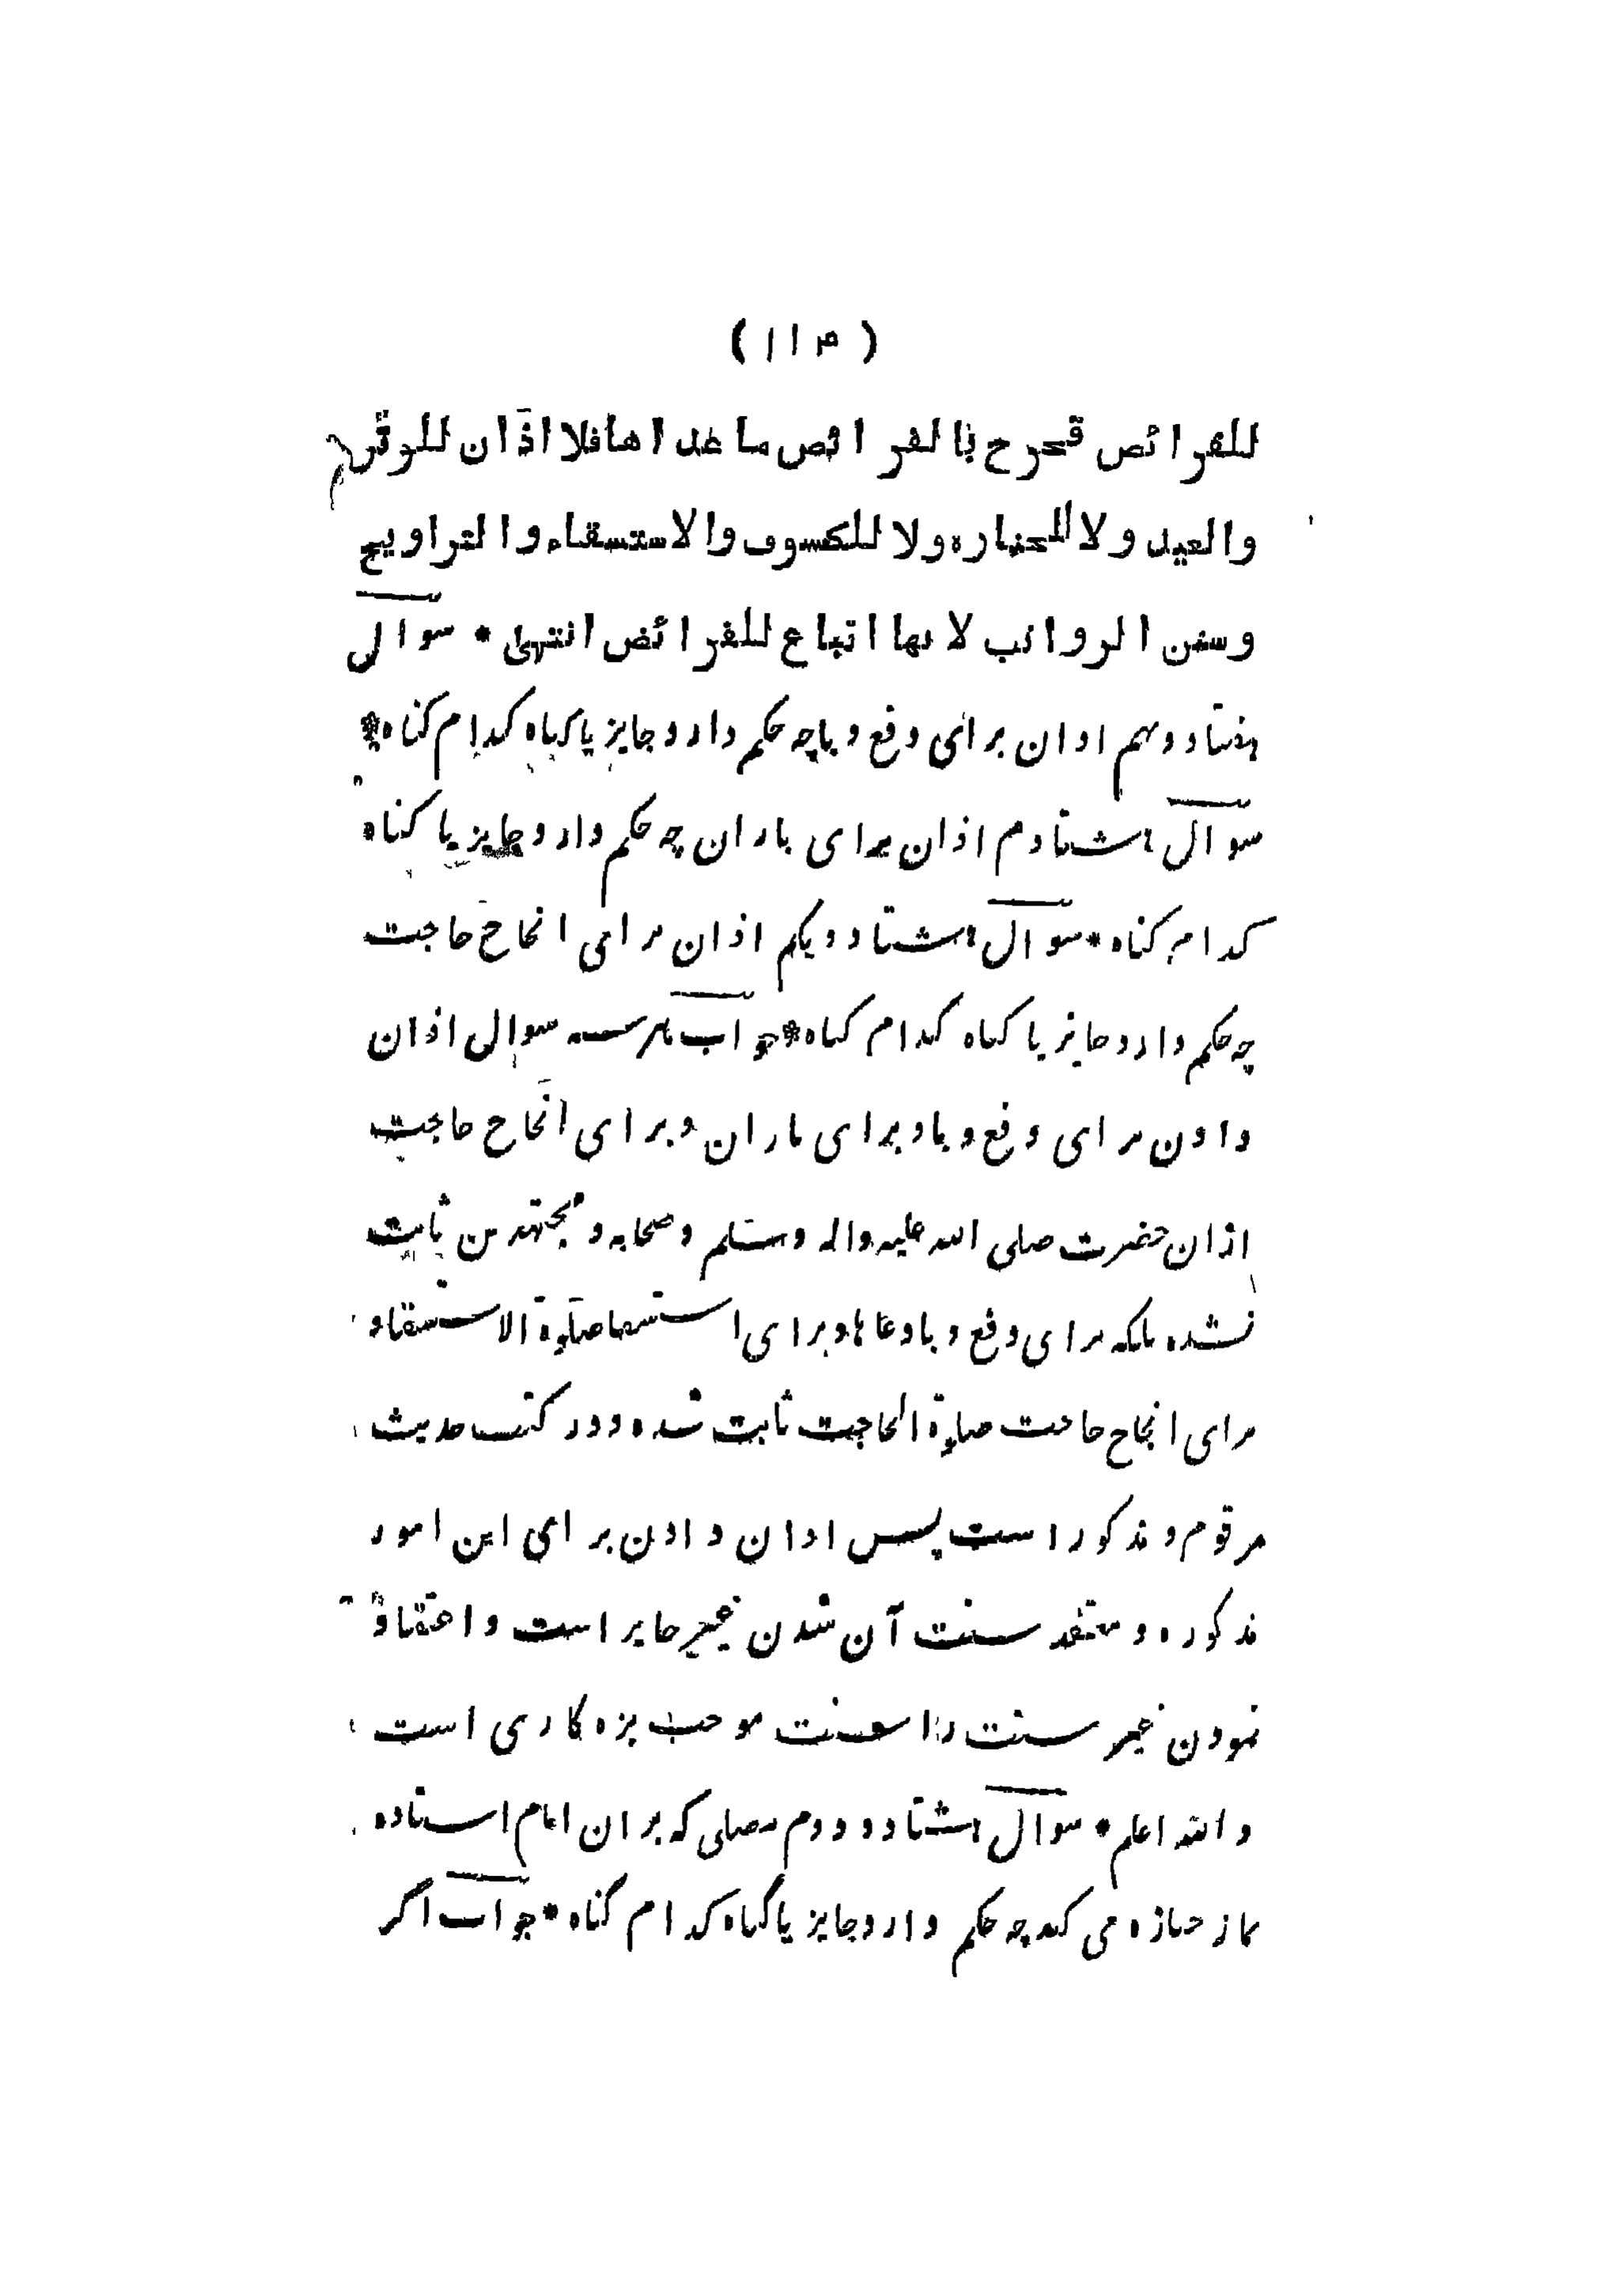 ( ۱۱۴ )
للفرائض فخرج بالفرائض ما عداها فلا اذان للوتر
والعيد ولا للجنازه ولا للكسوف والاستسقاء والتراويح
وسنن الرواتب لانها اتباع للفرائض انتهى * سوال
هفتاد و نهم اذان برای دفع وبا چه حکم دارد جایز یا گناه کدام گناه *
سوال هشتادم اذان برای باران چه حکم دارد جایز یا گناه
کدام گناه * سوال هشتاد و یکم اذان برای انجاح حاجت
چه حکم دارد جایز یا گناه کدام گناه * جواب هر سه سوال اذان
دادن برای دفع وبا و برای باران و برای انجاح حاجت
ازان حضرت صلی الله علیه واله وسلم و صحابه و مجتهدین ثابت
نشده بلکه برای دفع وبا دعاها و برای استسقا صلوة الاستسقا و
برای انجاح حاجت صلوة الحاجت ثابت شده و در کتب حدیث
مرقوم و مذکور است پس اذان دادن برای این امور
مذکوره و معتقد سنت آن شدن غیر جایز است و اعتقاد
نمودن غیر سنت را سنت موجب بزه کاری است
والله اعلم * سوال هشتاد و دوم مصلی که بران امام استاده
نماز جنازه می کند چه حکم دارد جایز یا گناه کدام گناه * جواب اگر